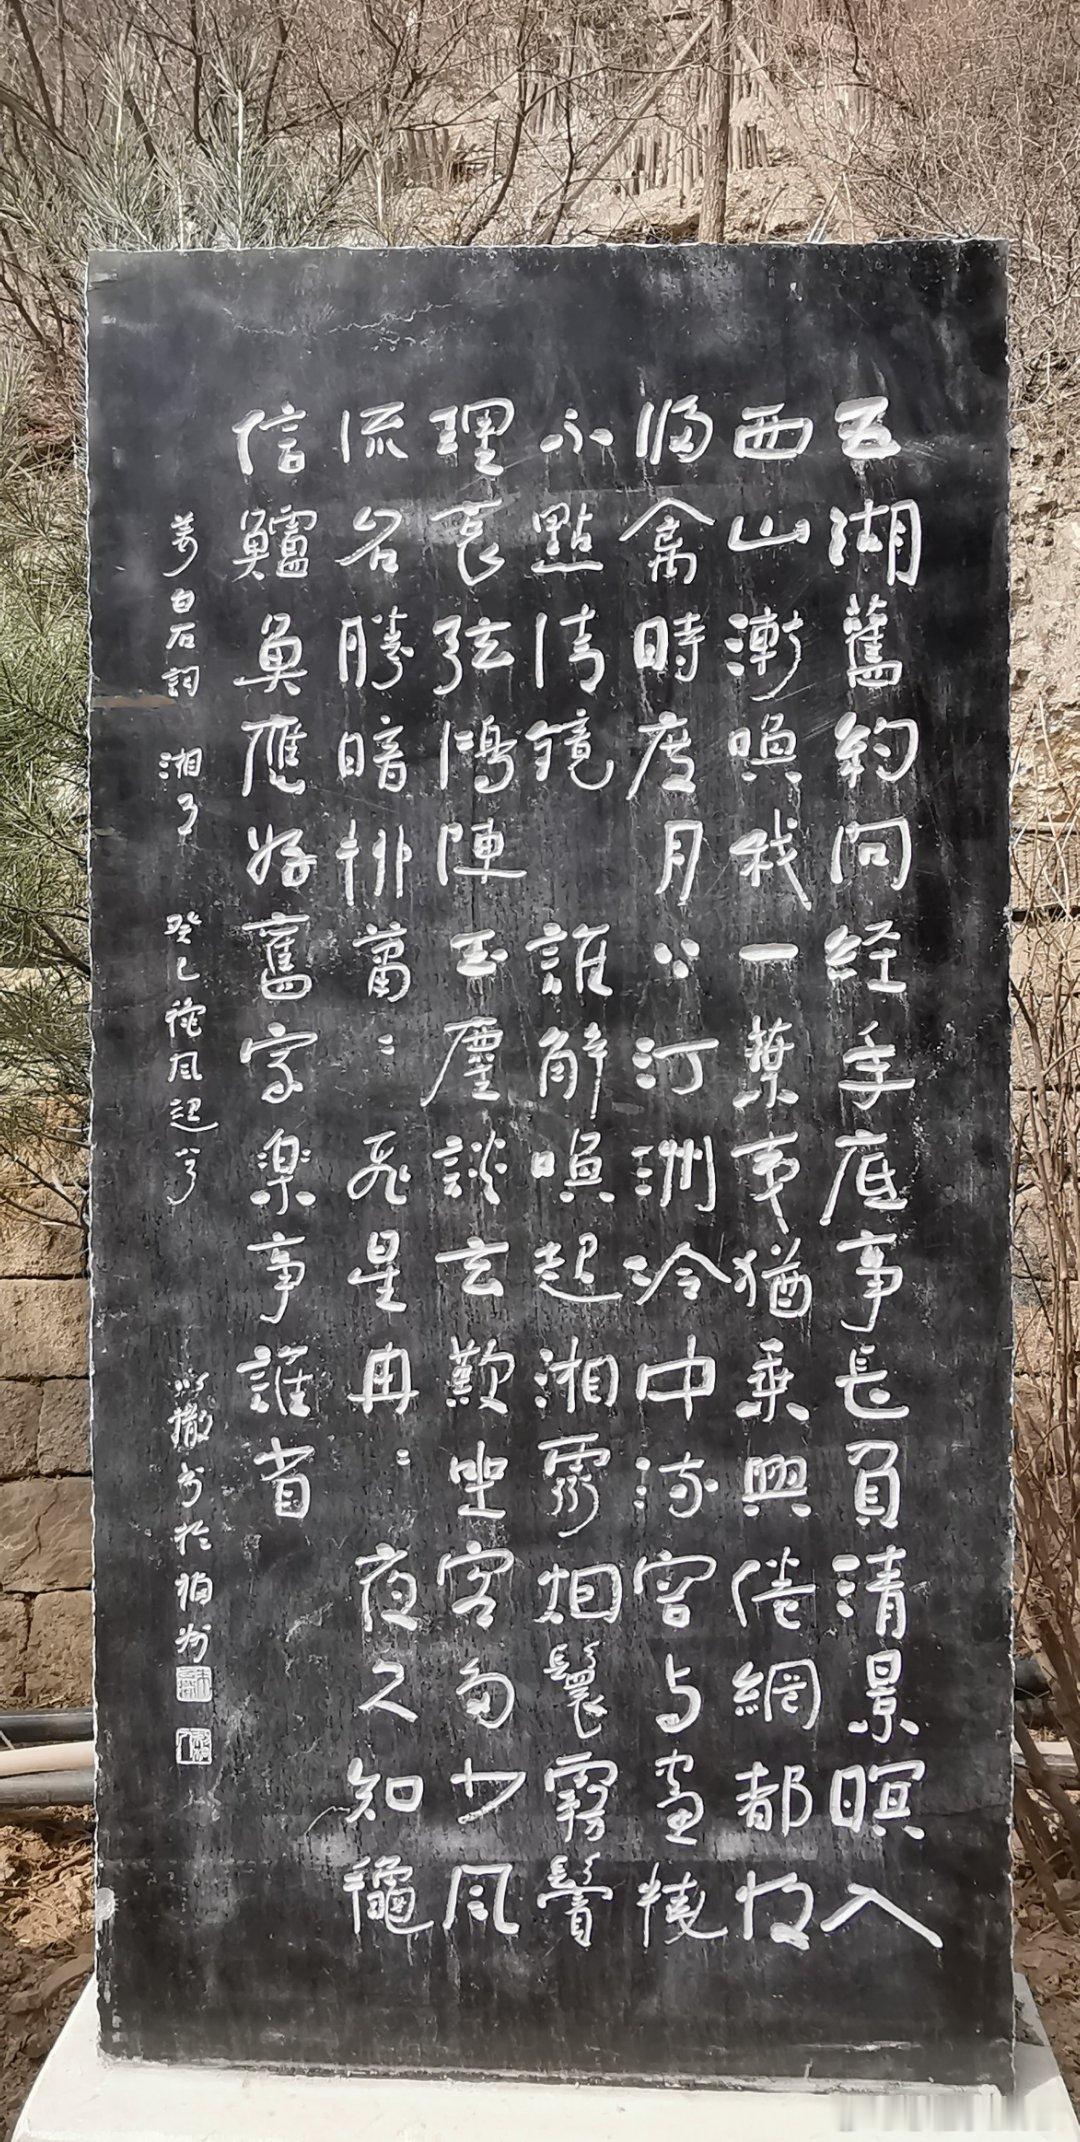 五湖舊約问经年底事長負清景暝入
西山漸喚我一葉夷猶乘興倦網都收
歸禽時度月上汀洲冷中流容与畫橈
不點清鏡 誰解喚起湘靈烟鬟霧鬢
理哀弦鴻陣玉麈談玄歎坐客多少風
流名勝暗柳蕭〻飛星冉〻夜久知穐
信鱸魚應好舊家楽事誰省
姜白石詞 湘月 癸巳穐風起兮 以撤书於